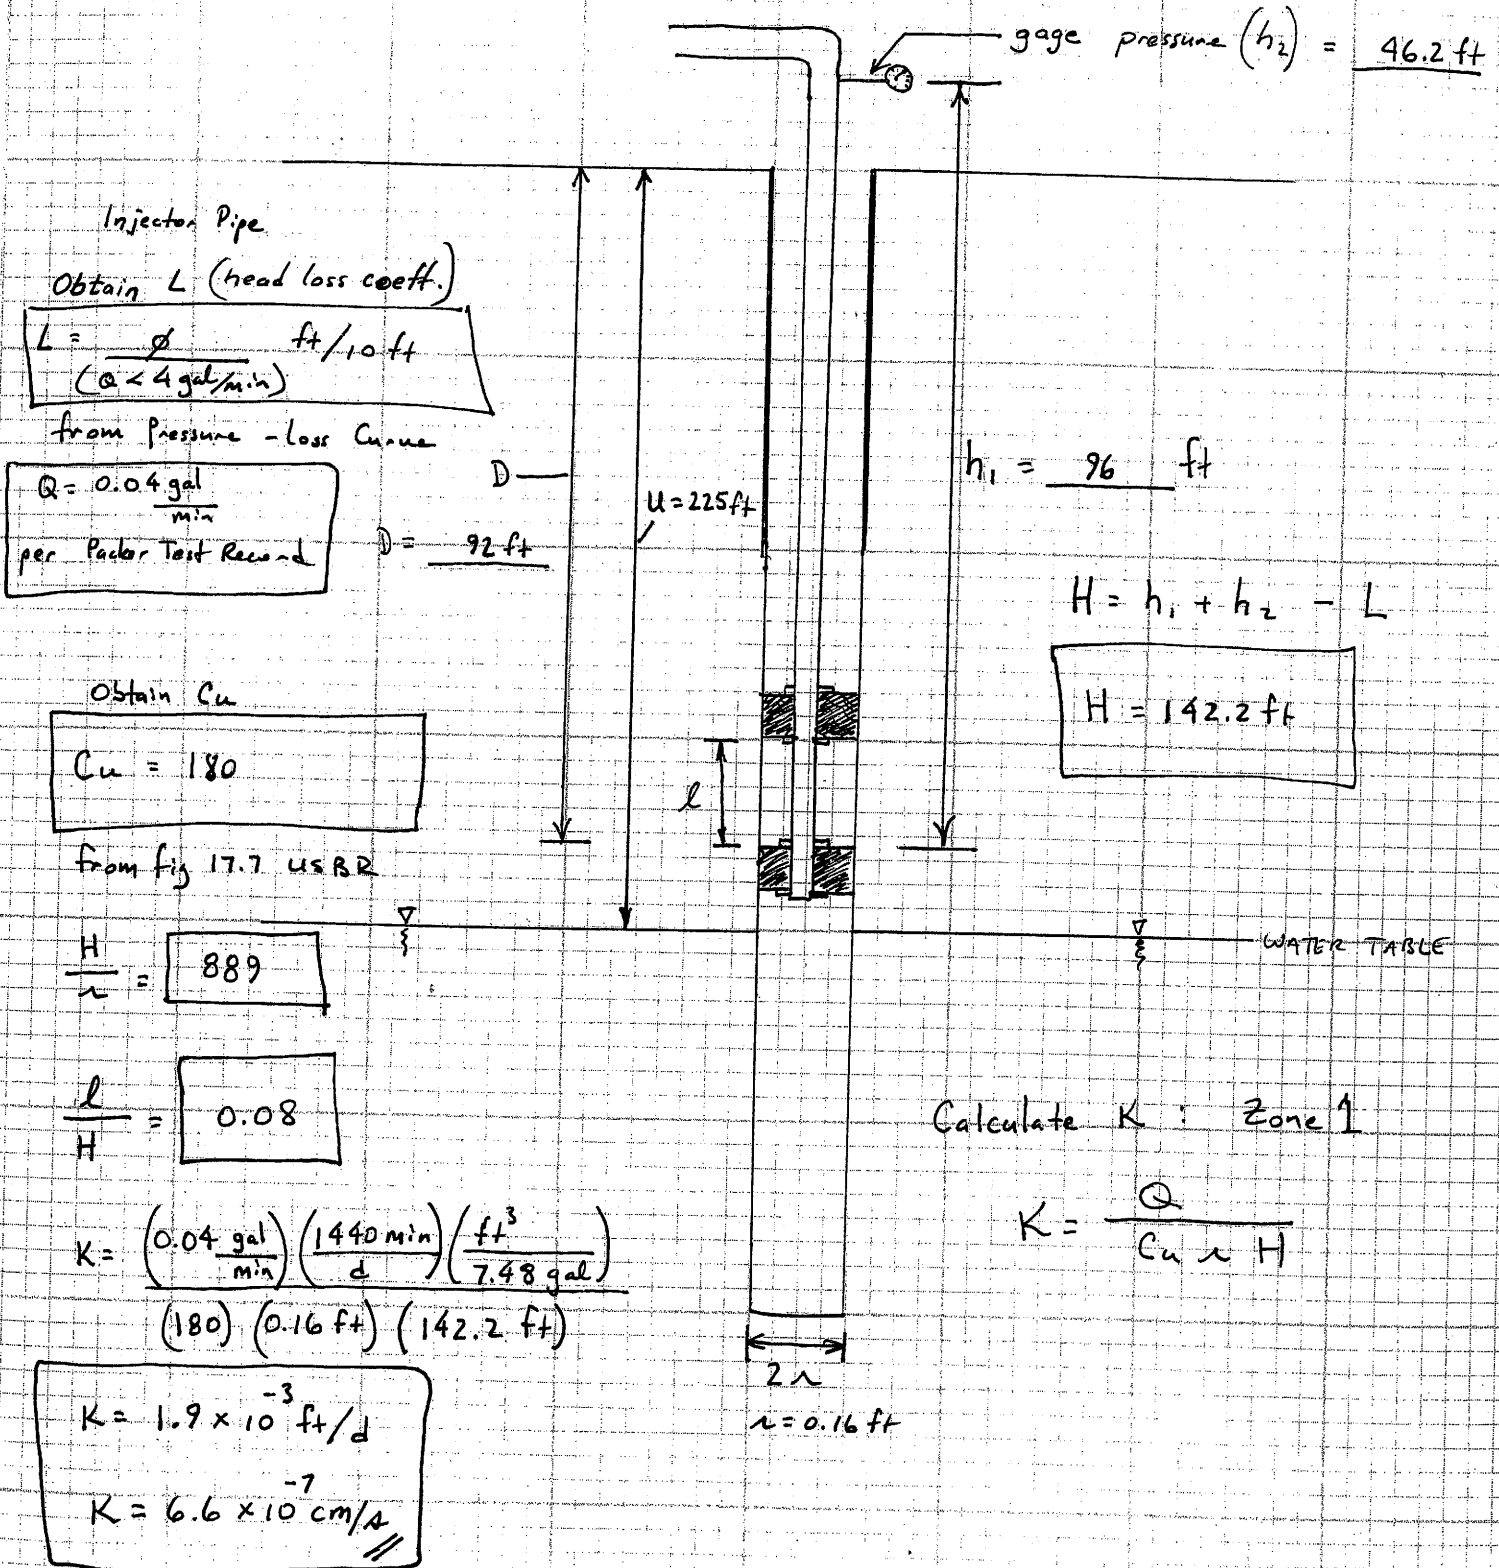 gage pressure (h₂) = 46.2 ft
Injector Pipe
Obtain L (head loss coeff.)
L = ø ft/10 ft
(Q < 4 gal/min)
from Pressure - Loss Curve
Q = 0.04 gal/min
per Packer Test Record
D
D = 92 ft
U = 225 ft
h₁ = 96 ft
H = h₁ + h₂ - L
H = 142.2 ft
Obtain Cu
Cu = 180
from fig 17.7 USBR
l
WATER TABLE
H/r = 889
l/H = 0.08
Calculate K : Zone 1
K = Q / Cu r H
K = (0.04 gal/min) (1440 min/d) (ft³/7.48 gal)
(180) (0.16 ft) (142.2 ft)
K = 1.9 x 10⁻³ ft/d
K = 6.6 x 10⁻⁷ cm/s
2r
r = 0.16 ft